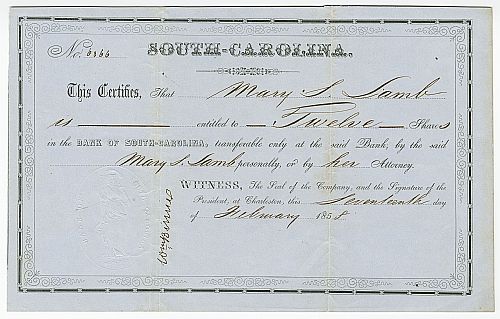 SOUTH-CAROLINA.
No. 6366
This Certifies, That Mary S. Lamb
is entitled to Twelve Shares
in the BANK OF SOUTH-CAROLINA, transferable only at the said Bank, by the said
Mary S. Lamb personally, or by her Attorney.
WITNESS, The Seal of the Company, and the Signature of the
President, at Charleston, this Seventeenth day
of February 1858